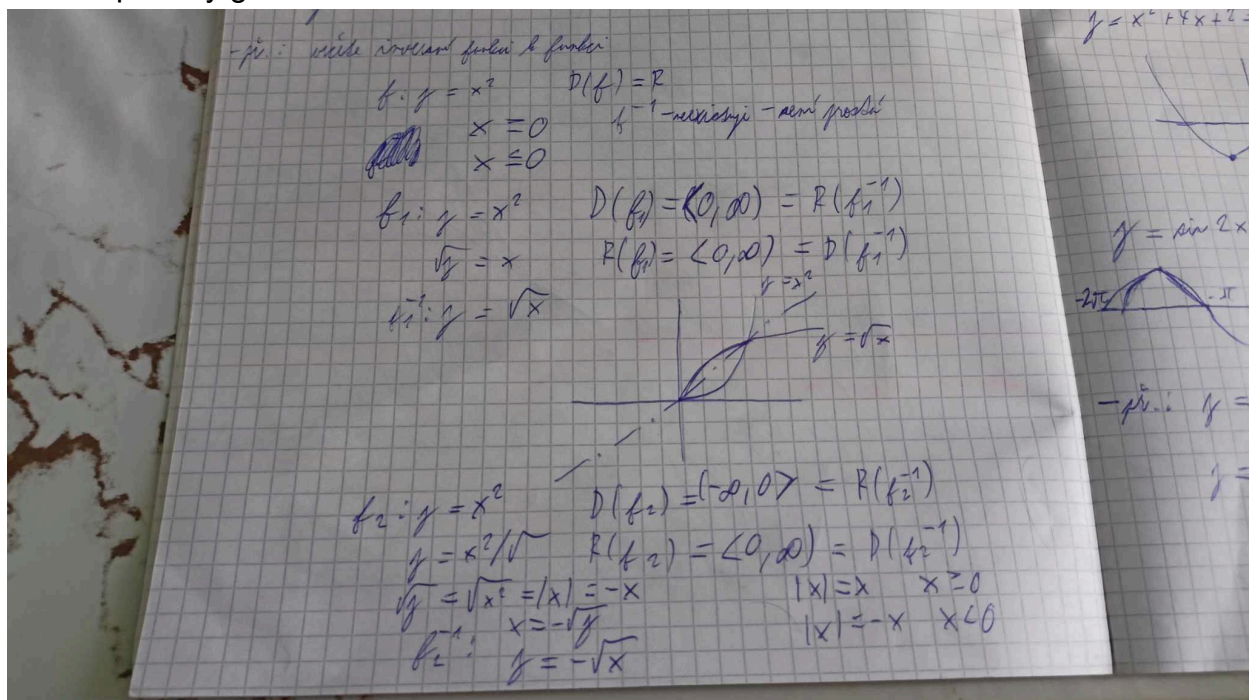 - př.: určete inverzní funkci k funkci
f: y = x² D(f) = R
x ≥ 0 f⁻¹ - neexistuje - není prostá
x ≤ 0
f₁: y = x² D(f₁) = <0, ∞) = R(f₁⁻¹)
√y = x R(f₁) = <0, ∞) = D(f₁⁻¹)
f₁⁻¹: y = √x
y = x²
y = √x
f₂: y = x² D(f₂) = (-∞, 0> = R(f₂⁻¹)
y = x² /√ R(f₂) = <0, ∞) = D(f₂⁻¹)
√y = √x² = |x| = -x |x| = x x ≥ 0
x = -√y |x| = -x x < 0
f₂⁻¹: y = -√x
y = x² + 4x + 2 =
y = sin 2x
-2π -π
- př.: y =
y =